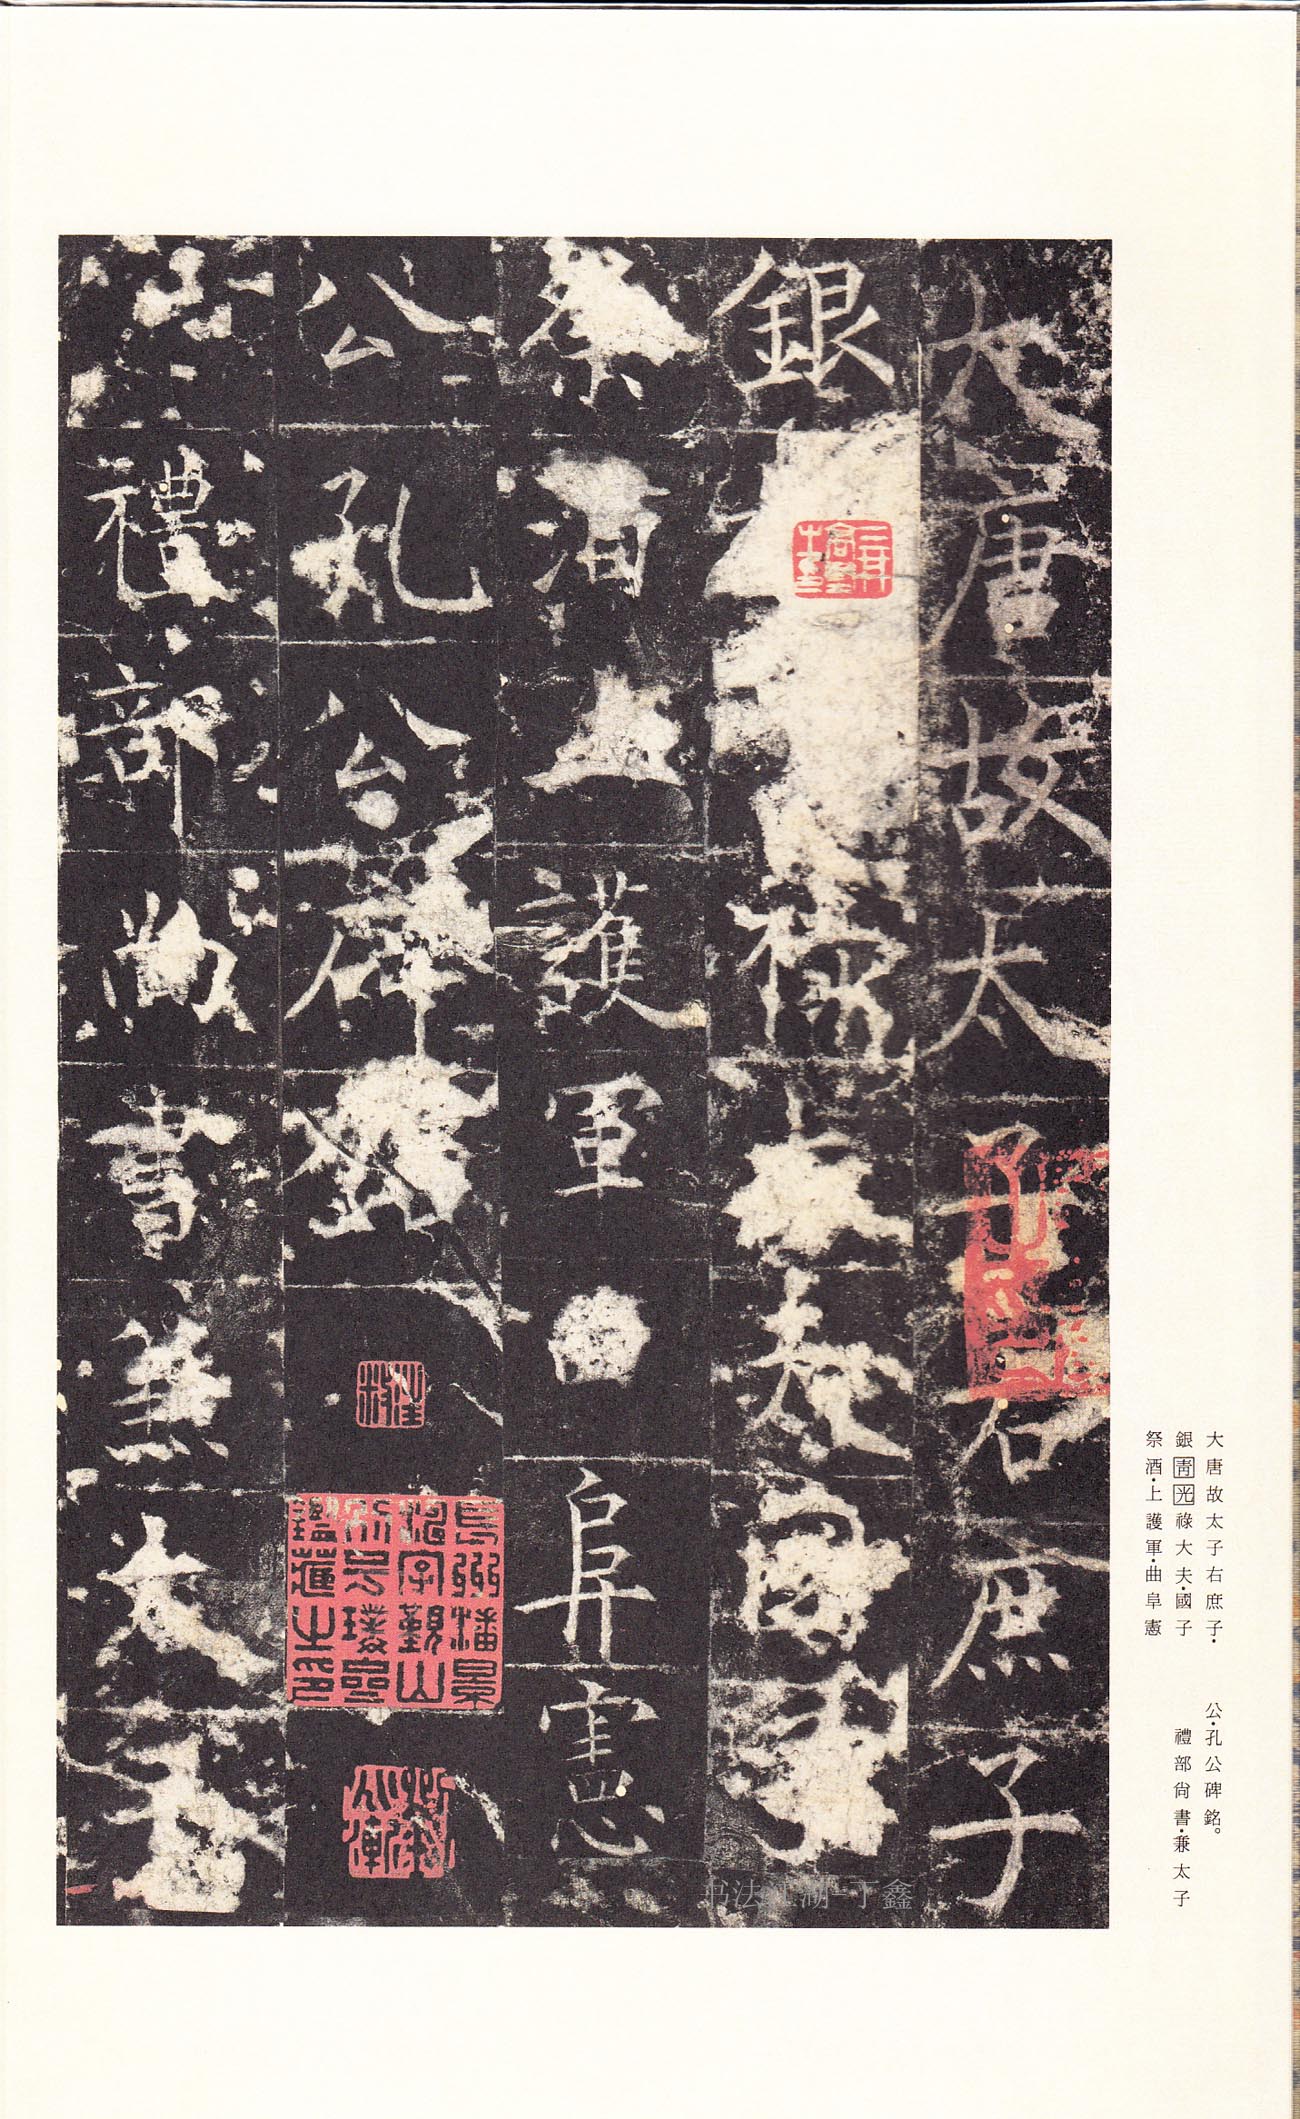 大唐故太子右庶子
銀
祿大夫國子
祭酒上護軍
阜憲
公孔公碑銘
禮部尚書兼太子
大唐故太子右庶子·
銀靑光祿大夫·國子
祭酒·上護軍·曲阜憲
公·孔公碑銘。
禮部尙書·兼太子
书法江湖-丁鑫